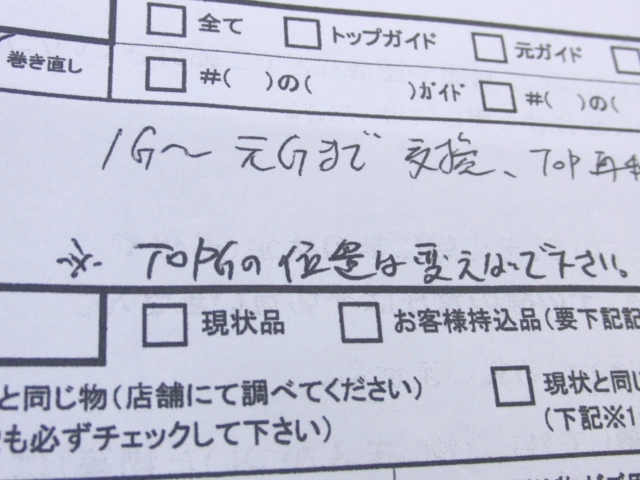 □ 全て □ トップガイド □ 元ガイド
巻き直し □ #( )の( )ガイド □ #( )の(
1G～元Gまで 交換、TOP再
※ TOPGの位置は変えないで下さい。
□ 現状品 □ お客様持込品(要下記記
と同じ物(店舗にて調べてください) □ 現状と同じ
も必ずチェックして下さい) (下記※1